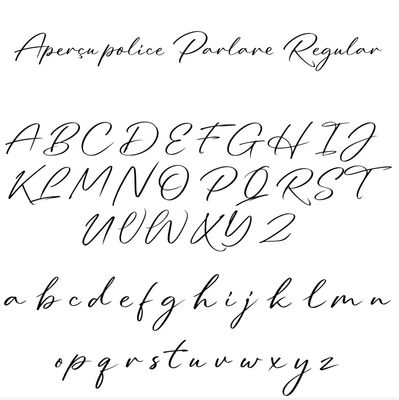 Aperçu police Parlare Regular
A B C D E F G H I J
K L M N O P Q R S T
U V W X Y Z
a b c d e f g h i j k l m n
o p q r s t u v w x y z